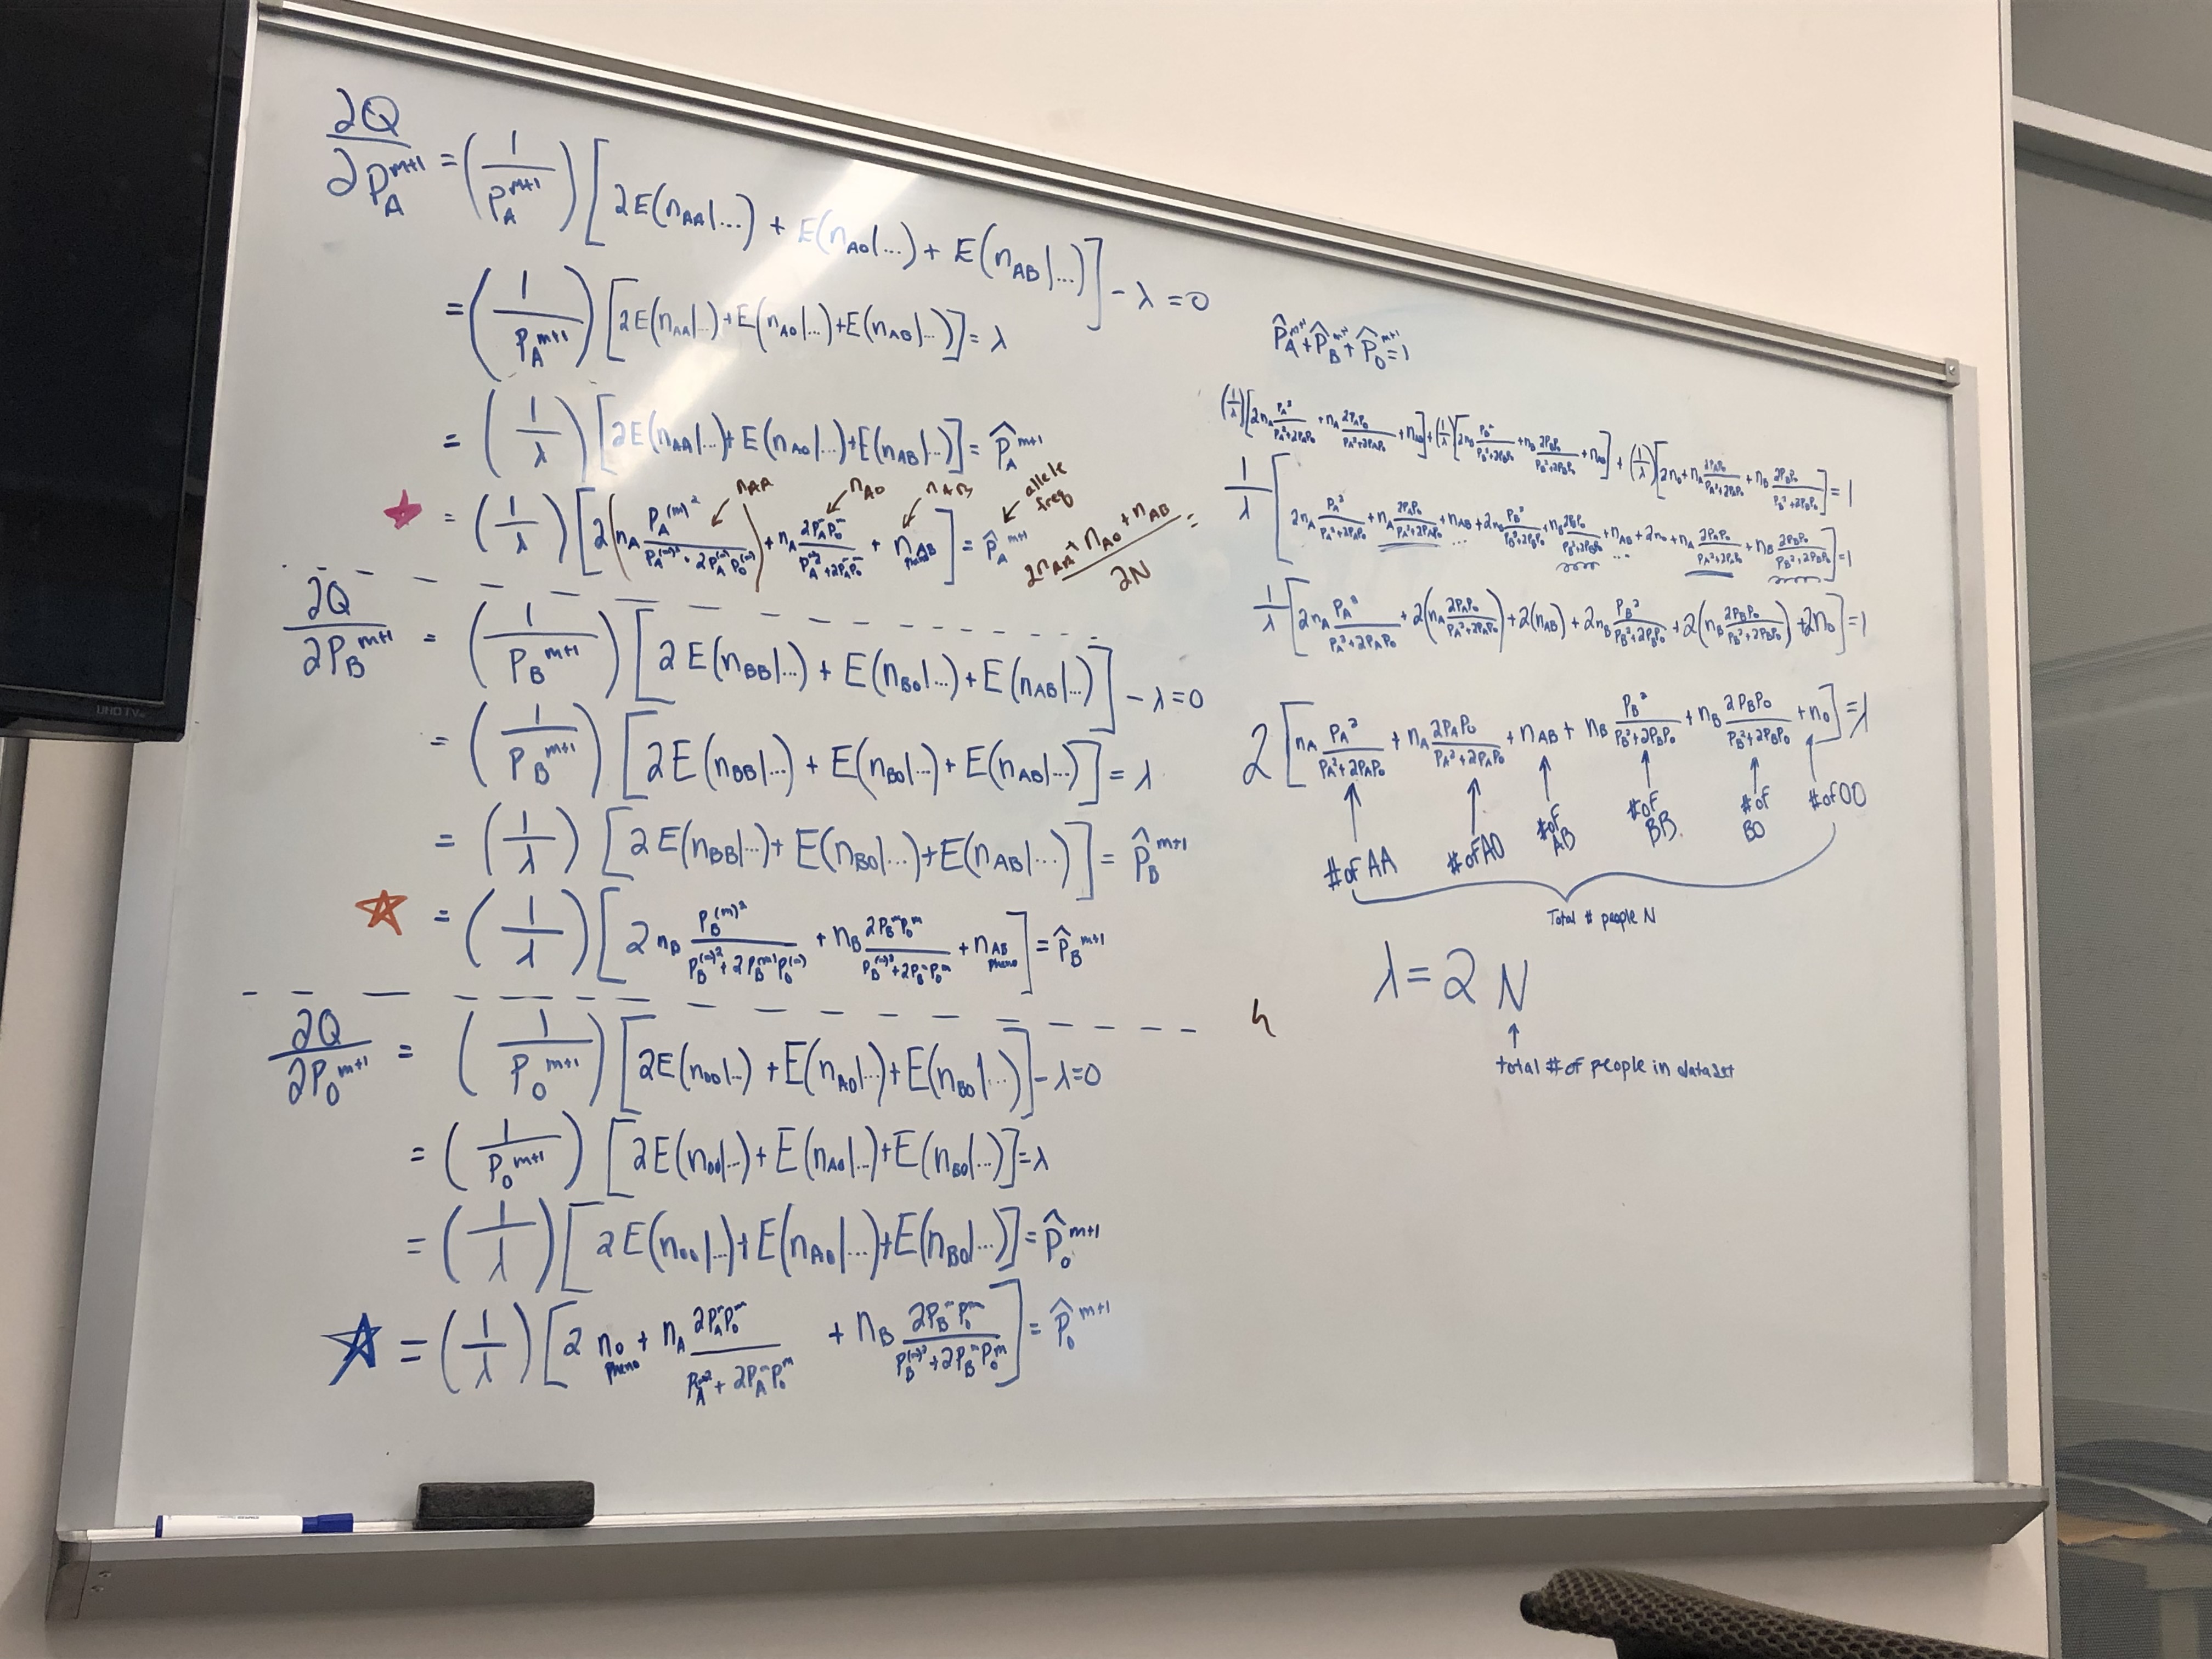 ∂Q/∂P_A^{m+1} = (1/P_A^{m+1}) [2E(n_AA|...) + E(n_AO|...) + E(n_AB|...)] - λ = 0
= (1/P_A^{m+1}) [2E(n_AA|...) + E(n_AO|...) + E(n_AB|...)] = λ
= (1/λ) [2E(n_AA|...) + E(n_AO|...) + E(n_AB|...)] = P̂_A^{m+1}
n_AA n_AO n_AB allele freq
= (1/λ) [2(n_A P_A^{(m)2}/(P_A^{(m)2} + 2P_A^{(m)}P_O^{(m)})) + n_A 2P_A^m P_O^m/(P_A^{(m)2} + 2P_A^m P_O^m) + n_AB pheno] = P̂_A^{m+1} (2n_AA + n_AO + n_AB)/2N =
∂Q/∂P_B^{m+1} = (1/P_B^{m+1}) [2E(n_BB|...) + E(n_BO|...) + E(n_AB|...)] - λ = 0
= (1/P_B^{m+1}) [2E(n_BB|...) + E(n_BO|...) + E(n_AB|...)] = λ
= (1/λ) [2E(n_BB|...) + E(n_BO|...) + E(n_AB|...)] = P̂_B^{m+1}
= (1/λ) [2n_B P_B^{(m)2}/(P_B^{(m)2} + 2P_B^{(m)}P_O^{(m)}) + n_B 2P_B^m P_O^m/(P_B^{(m)2} + 2P_B^m P_O^m) + n_AB pheno] = P̂_B^{m+1}
∂Q/∂P_O^{m+1} = (1/P_O^{m+1}) [2E(n_OO|...) + E(n_AO|...) + E(n_BO|...)] - λ = 0
= (1/P_O^{m+1}) [2E(n_OO|...) + E(n_AO|...) + E(n_BO|...)] = λ
= (1/λ) [2E(n_OO|...) + E(n_AO|...) + E(n_BO|...)] = P̂_O^{m+1}
= (1/λ) [2n_O pheno + n_A 2P_A^m P_O^m/(P_A^{m2} + 2P_A^m P_O^m) + n_B 2P_B^m P_O^m/(P_B^{(m)2} + 2P_B^m P_O^m)] = P̂_O^{m+1}
P̂_A^{m+1} + P̂_B^{m+1} + P̂_O^{m+1} = 1
(1/λ)[2n_A P_A²/(P_A²+2P_AP_O) + n_A 2P_AP_O/(P_A²+2P_AP_O) + n_AB] + (1/λ)[2n_B P_B²/(P_B²+2P_BP_O) + n_B 2P_BP_O/(P_B²+2P_BP_O) + n_AB] + (1/λ)[2n_O + n_A 2P_AP_O/(P_A²+2P_AP_O) + n_B 2P_BP_O/(P_B²+2P_BP_O)] = 1
1/λ [2n_A P_A²/(P_A²+2P_AP_O) + n_A 2P_AP_O/(P_A²+2P_AP_O) + n_AB + 2n_B P_B²/(P_B²+2P_BP_O) + n_B 2P_BP_O/(P_B²+2P_BP_O) + n_AB + 2n_O + n_A 2P_AP_O/(P_A²+2P_AP_O) + n_B 2P_BP_O/(P_B²+2P_BP_O)] = 1
1/λ [2n_A P_A²/(P_A²+2P_AP_O) + 2(n_A 2P_AP_O/(P_A²+2P_AP_O)) + 2(n_AB) + 2n_B P_B²/(P_B²+2P_BP_O) + 2(n_B 2P_BP_O/(P_B²+2P_BP_O)) + 2n_O] = 1
2 [n_A P_A²/(P_A²+2P_AP_O) + n_A 2P_AP_O/(P_A²+2P_AP_O) + n_AB + n_B P_B²/(P_B²+2P_BP_O) + n_B 2P_BP_O/(P_B²+2P_BP_O) + n_O] = λ
# of AA # of AO # of AB # of BB # of BO # of OO
Total # people N
λ = 2N
total # of people in dataset
UHD TV